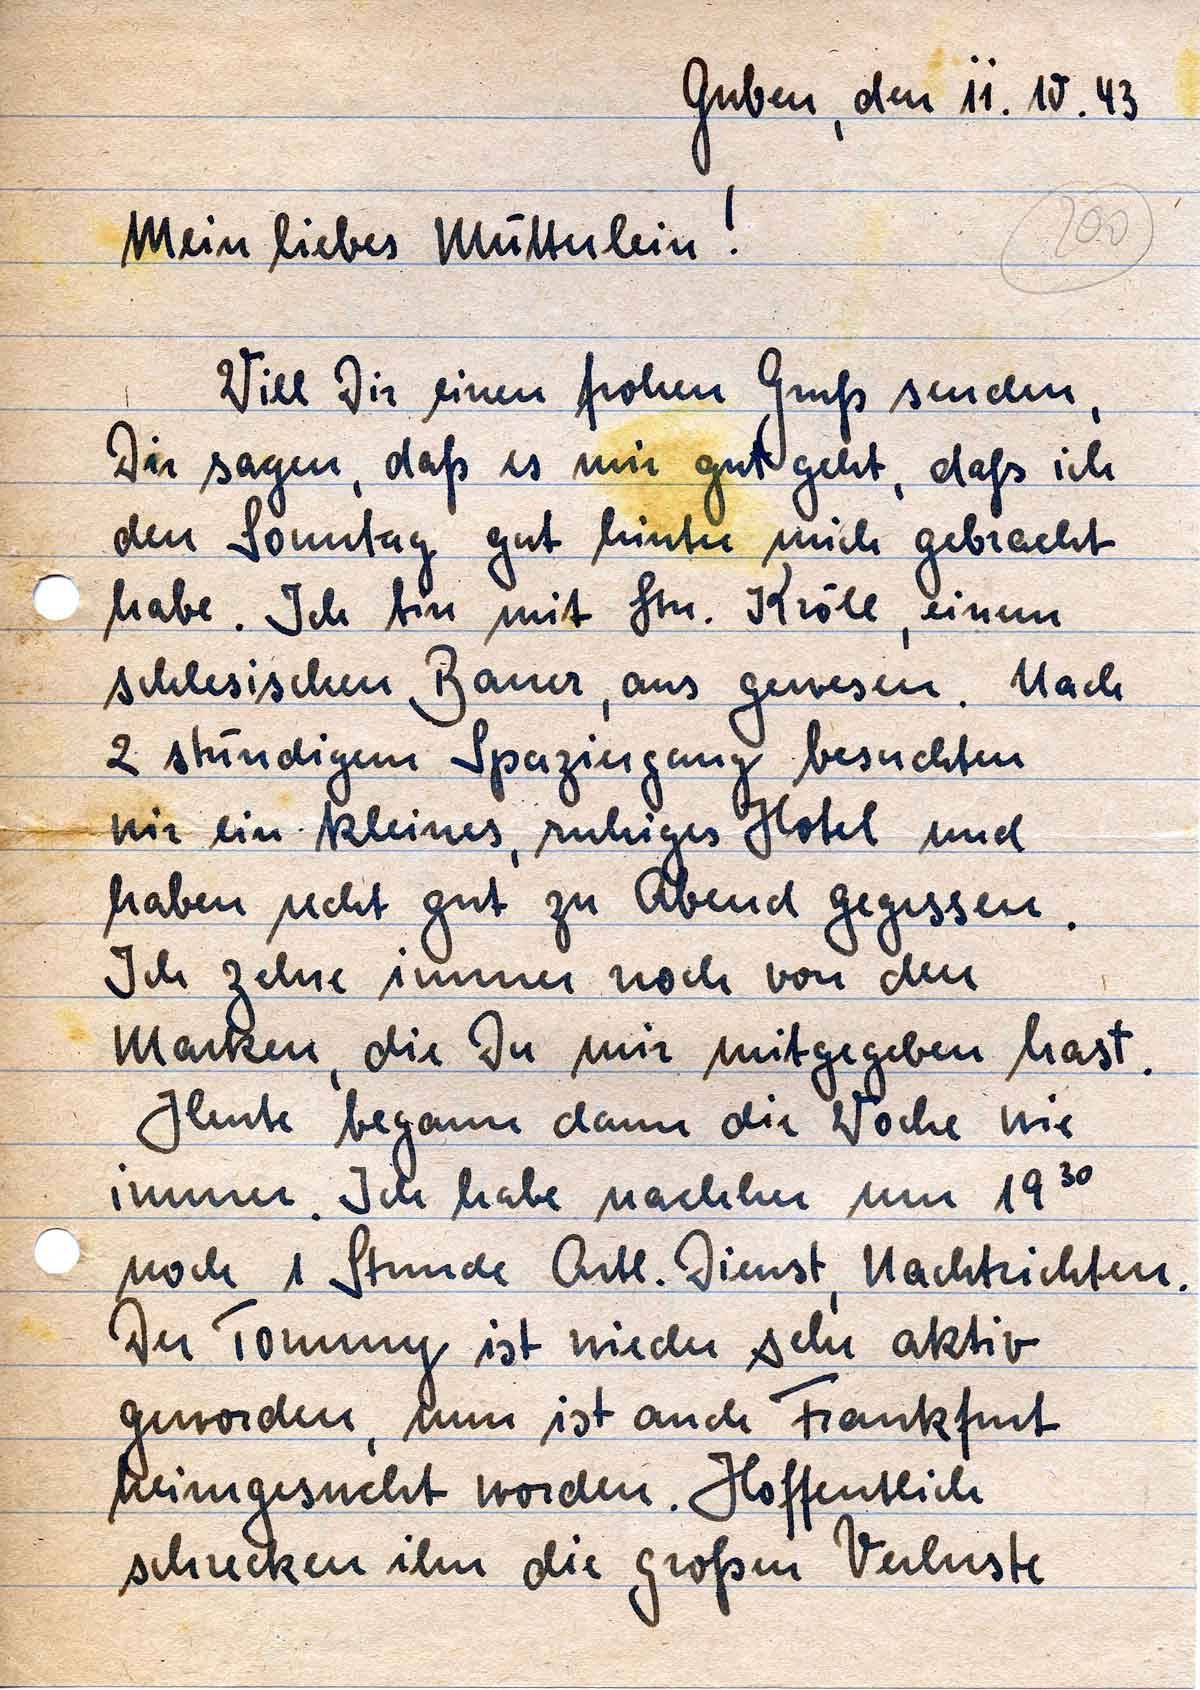 Guben, den 11. 10. 43
200
Mein liebes Mütterlein!
Will Dir einen frohen Gruß senden,
Dir sagen, daß es mir gut geht, daß ich
den Sonntag gut hinter mich gebracht
habe. Ich bin mit Str. Kröll, einem
schlesischen Bauer, aus gewesen. Nach
2 stündigem Spaziergang besuchten
wir ein kleines, ruhiges Hotel und
haben recht gut zu Abend gegessen.
Ich zehre immer noch von den
Marken, die Du mir mitgegeben hast.
Heute begann dann die Woche wie
immer. Ich habe nachher um 19 30
noch 1 Stunde Artl. Dienst, Nachrichten.
Der Tommy ist wieder sehr aktiv
geworden, nun ist auch Frankfurt
heimgesucht worden. Hoffentlich
schrecken ihn die großen Verluste